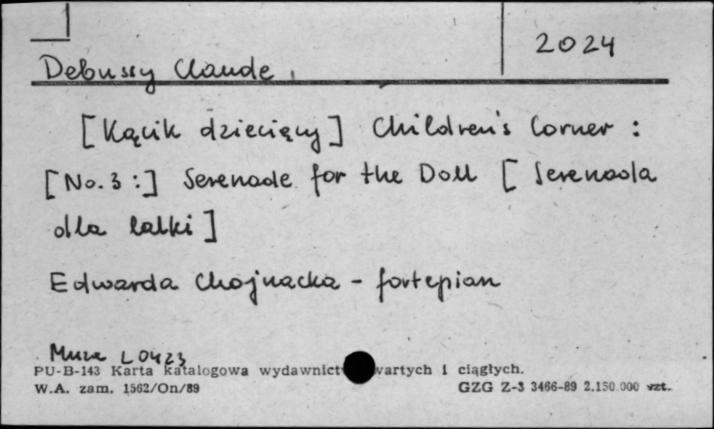 2024
Debussy Claude
[Kącik dziecięcy] Children's Corner :
[No. 3 :] Serenade for the Doll [Serenada
dla lalki]
Edwarda Chojnacka - fortepian
Muza L 0423
PU-B-143 Karta katalogowa wydawnict wartych i ciągłych.
W.A. zam. 1562/On/89 GZG Z-3 3466-89 2.150.000 szt.